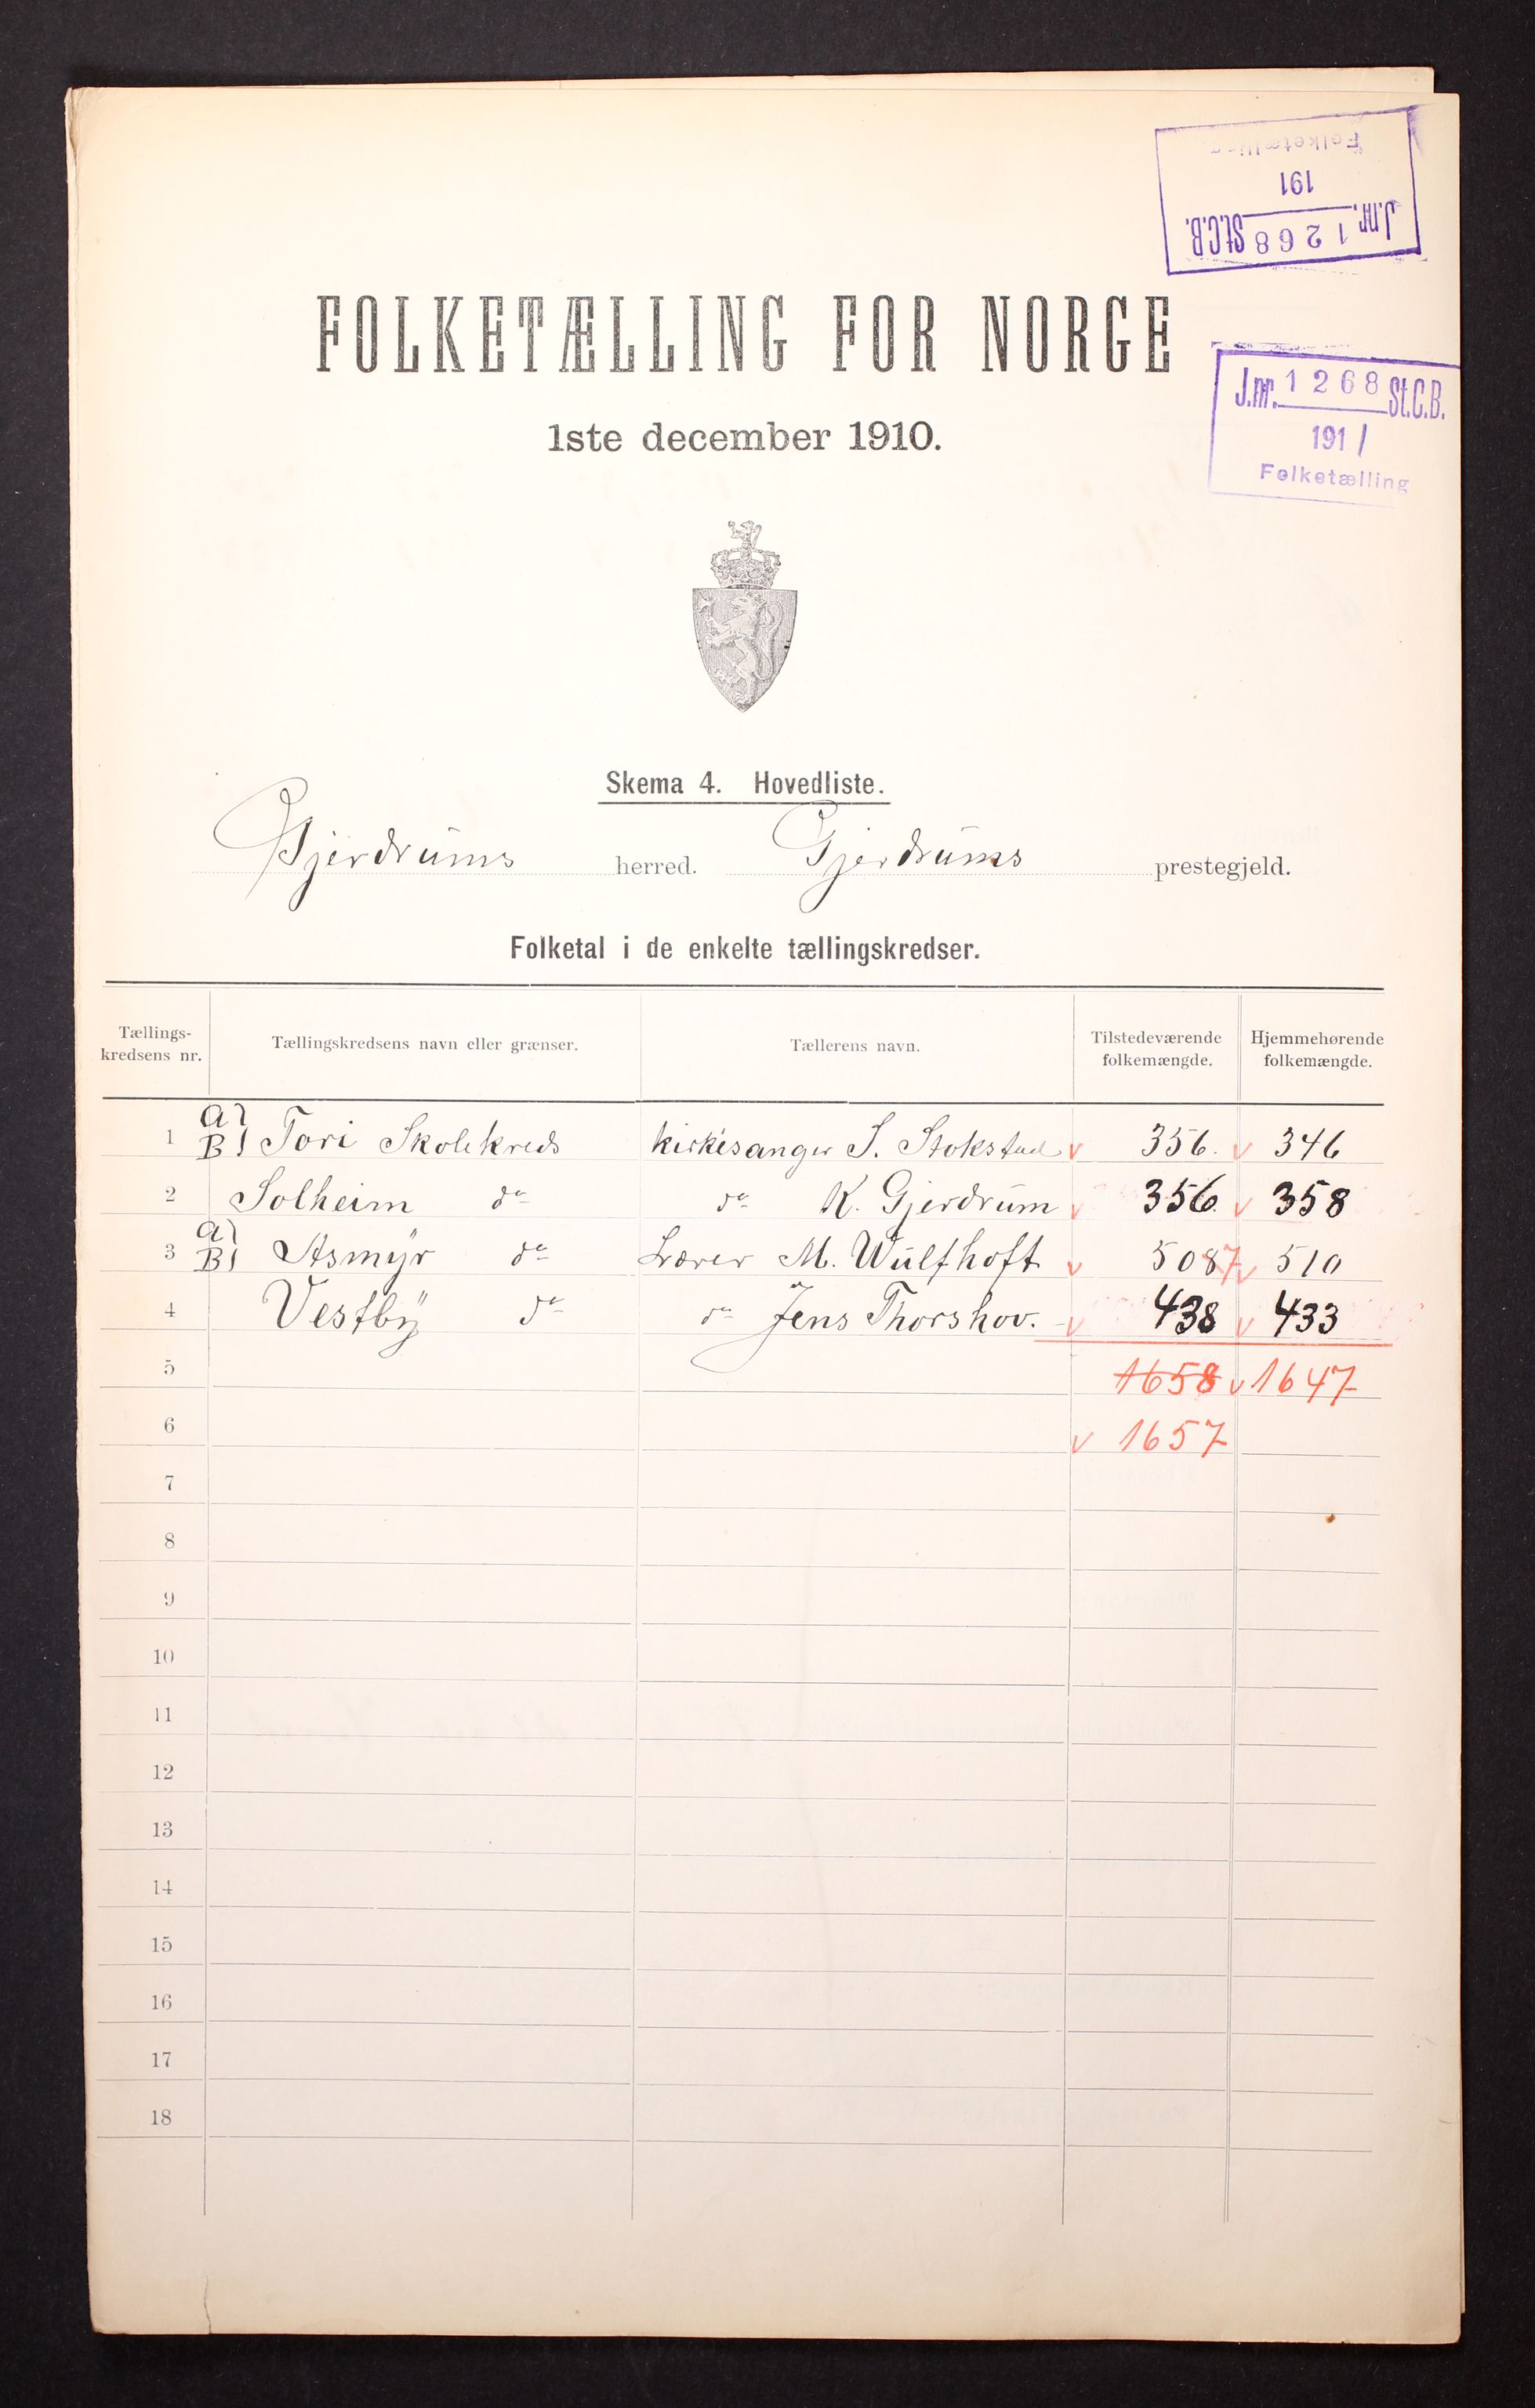 Folketælling
191
J.nr. 1268 St.C.B.
FOLKETÆLLING FOR NORGE
J.nr. 1268 St.C.B.
191 1
Folketælling
1ste december 1910.
Skema 4. Hovedliste.
Gjerdrums herred. Gjerdrums prestegjeld.
Folketal i de enkelte tællingskredser.
Tællings-kredsens nr. Tællingskredsens navn eller grænser. Tællerens navn. Tilstedeværende folkemængde. Hjemmehørende folkemængde.
1 A) B) Tori Skolekreds Kirkesanger S. Stokstad v 356. v 346
2 Solheim do do K. Gjerdrum v 356. v 358
3 A) B) Asmyr do Lærer M. Wulfhoft v 5087 v 510
4 Vestby do do Jens Thorshov. v 438 v 433
5 1658 v 1647
6 v 1657
7
8
9
10
11
12
13
14
15
16
17
18